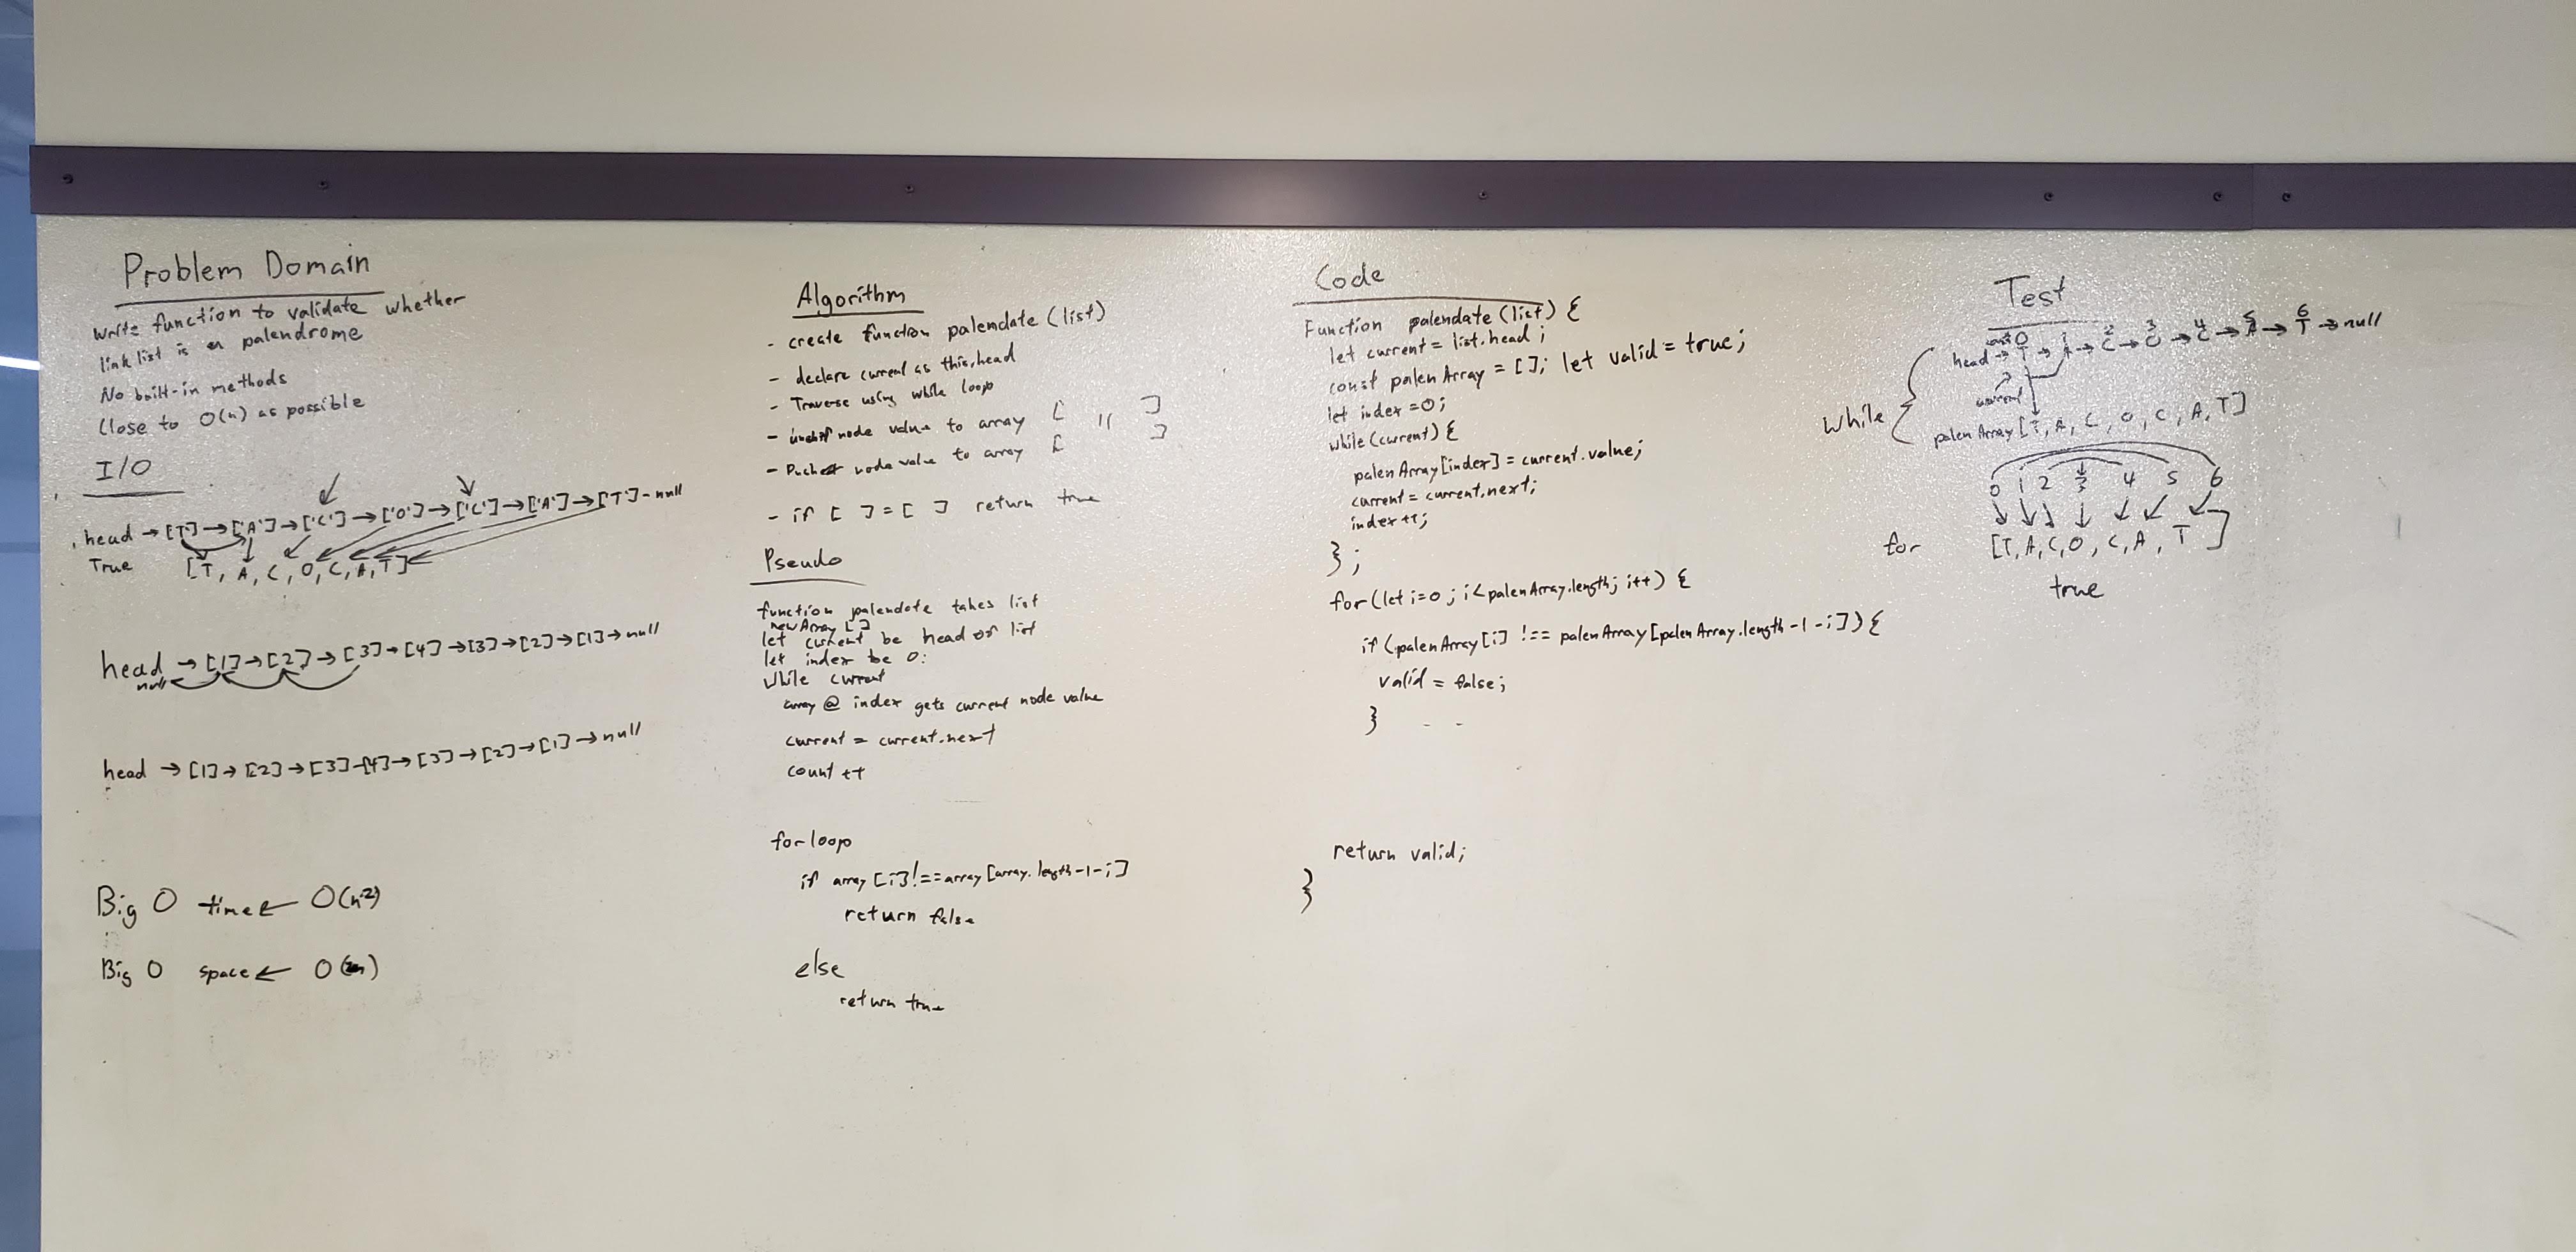 Problem Domain
Write function to validate whether
link list is a palendrome
No built-in methods
Close to O(n) as possible
I/O
head → ['T'] → ['A'] → ['C'] → ['O'] → ['C'] → ['A'] → ['T'] - null
True [T, A, C, O, C, A, T]
head → [1] → [2] → [3] → [4] → [3] → [2] → [1] → null
null
head → [1] → [2] → [3] - [4] → [3] → [2] → [1] → null
Big O time ← O(n2)
Big O space ← O( )
Algorithm
- create function palendate (list)
- declare current as this.head
- Traverse using while loop
- node value to array [ " ]
- node value to array [ ]
- if [ ] = [ ] return true
Pseudo
function palendate takes list
new Array [ ]
let current be head of list
let index be 0:
While current
array @ index gets current node value
current = current.next
count ++
for loop
if array [i] !== array [array.length-1-i]
return false
else
return true
Code
Function palendate (list) {
let current = list.head;
const palenArray = []; let valid = true;
let index = 0;
while (current) {
palenArray[index] = current.value;
current = current.next;
index ++;
};
for (let i=0; i < palenArray.length; i++) {
if (palenArray[i] !== palenArray[palenArray.length-1-i]) {
valid = false;
}
return valid;
}
Test
0 1 2 3 4 5 6
head → T → A → C → O → C → A → T → null
current
While {
palenArray [T, A, C, O, C, A, T]
0 1 2 3 4 5 6
for [T, A, C, O, C, A, T]
true